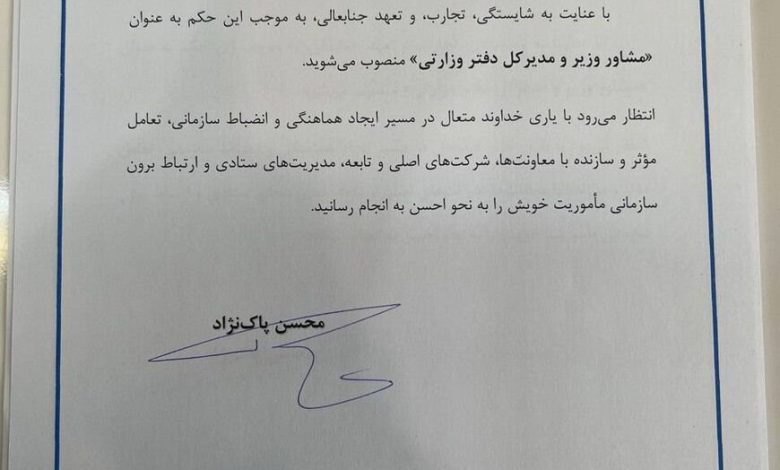 با عنایت به شایستگی، تجارب، و تعهد جنابعالی، به موجب این حکم به عنوان
«مشاور وزیر و مدیرکل دفتر وزارتی» منصوب می‌شوید.
انتظار می‌رود با یاری خداوند متعال در مسیر ایجاد هماهنگی و انضباط سازمانی، تعامل
مؤثر و سازنده با معاونت‌ها، شرکت‌های اصلی و تابعه، مدیریت‌های ستادی و ارتباط برون
سازمانی مأموریت خویش را به نحو احسن به انجام رسانید.
محسن پاک‌نژاد